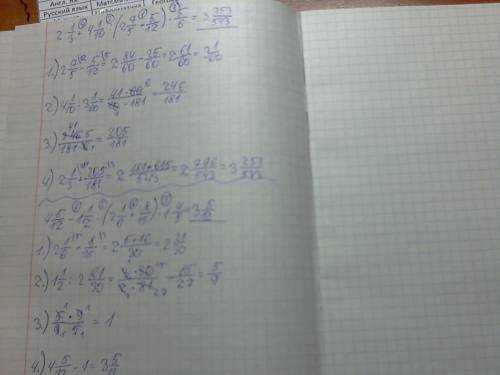 Русский язык
2 1/3 + 4 1/10 : (2 3/5 + 5/12) · 5/6 = 3 253/543
1) 2 3/5 + 5/12 = 2 36/60 + 25/60 = 2 61/60 = 3 1/60
2) 4 1/10 : 3 1/60 = 41·60/10·181 = 246/181
3) 246·5/181·6 = 205/181
4) 2 1/3 + 205/181 = 2 181+615/543 = 2 796/543 = 3 253/543
4 5/12 - 1 1/2 : (2 1/6 + 8/15) · 1 4/5 = 3 5/12
1) 2 1/6 + 8/15 = 2 5+16/30 = 2 21/30
2) 1 1/2 : 2 21/30 = 3·30/2·81 = 15/27 = 5/9
3) 5·9/9·5 = 1
4) 4 5/12 - 1 = 3 5/12